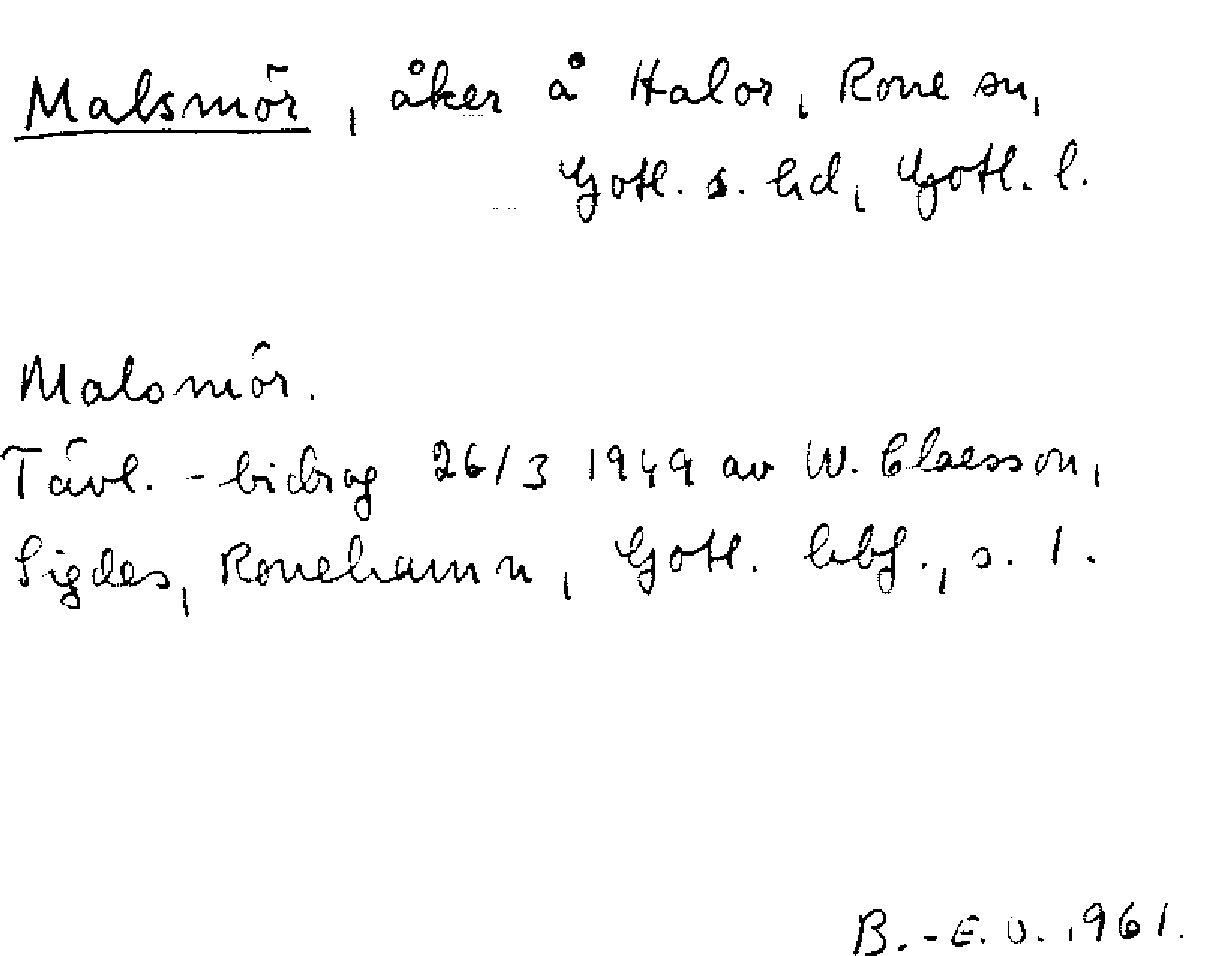 Malsmör, åker å Halor, Rone sn,
Gotl. s. hd, Gotl. l.
Malsmör.
Tävl.-bidrag 26/3 1949 av W. Claesson,
Sigdes, Ronehamn, Gotl. hbf., s. 1.
B.-E. U. 1961.